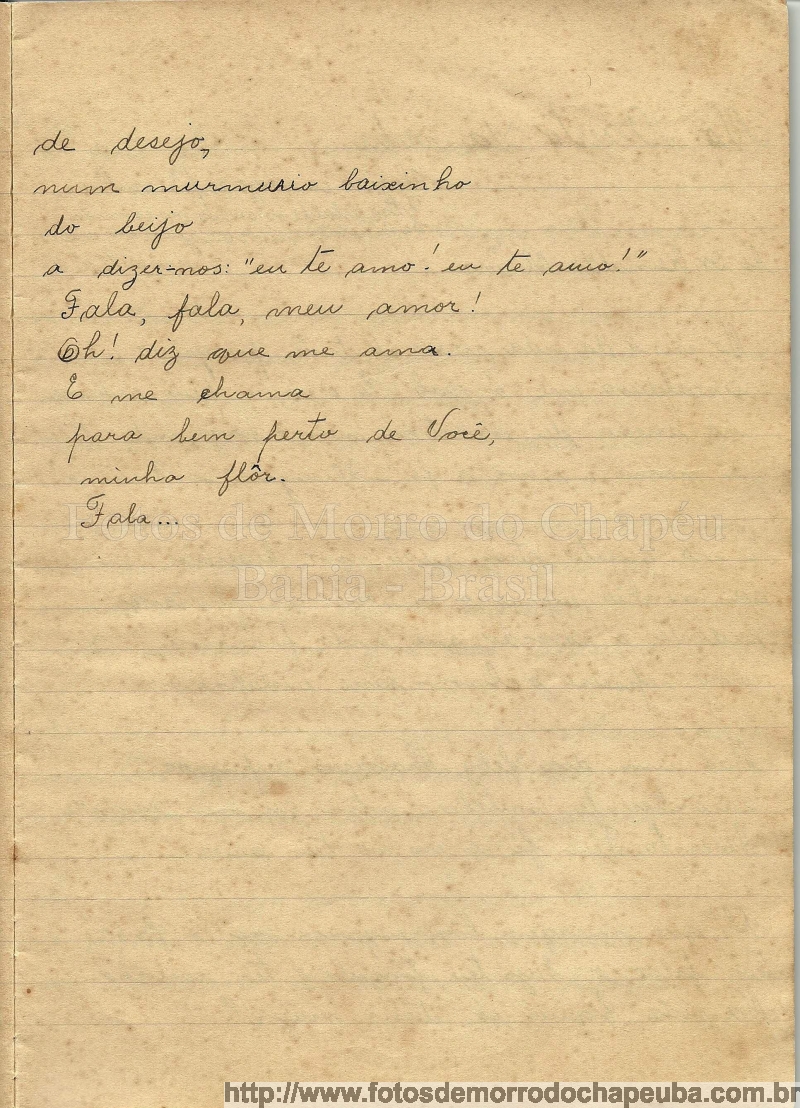 de desejo,
num murmurio baixinho
do beijo
a dizer-nos: "eu te amo! eu te amo!"
Fala, fala, meu amor!
Oh! diz que me ama.
E me chama
para bem perto de Você,
minha flôr.
Fala...
Fotos de Morro do Chapéu
Bahia - Brasil
http://www.fotosdemorrodochapeuba.com.br